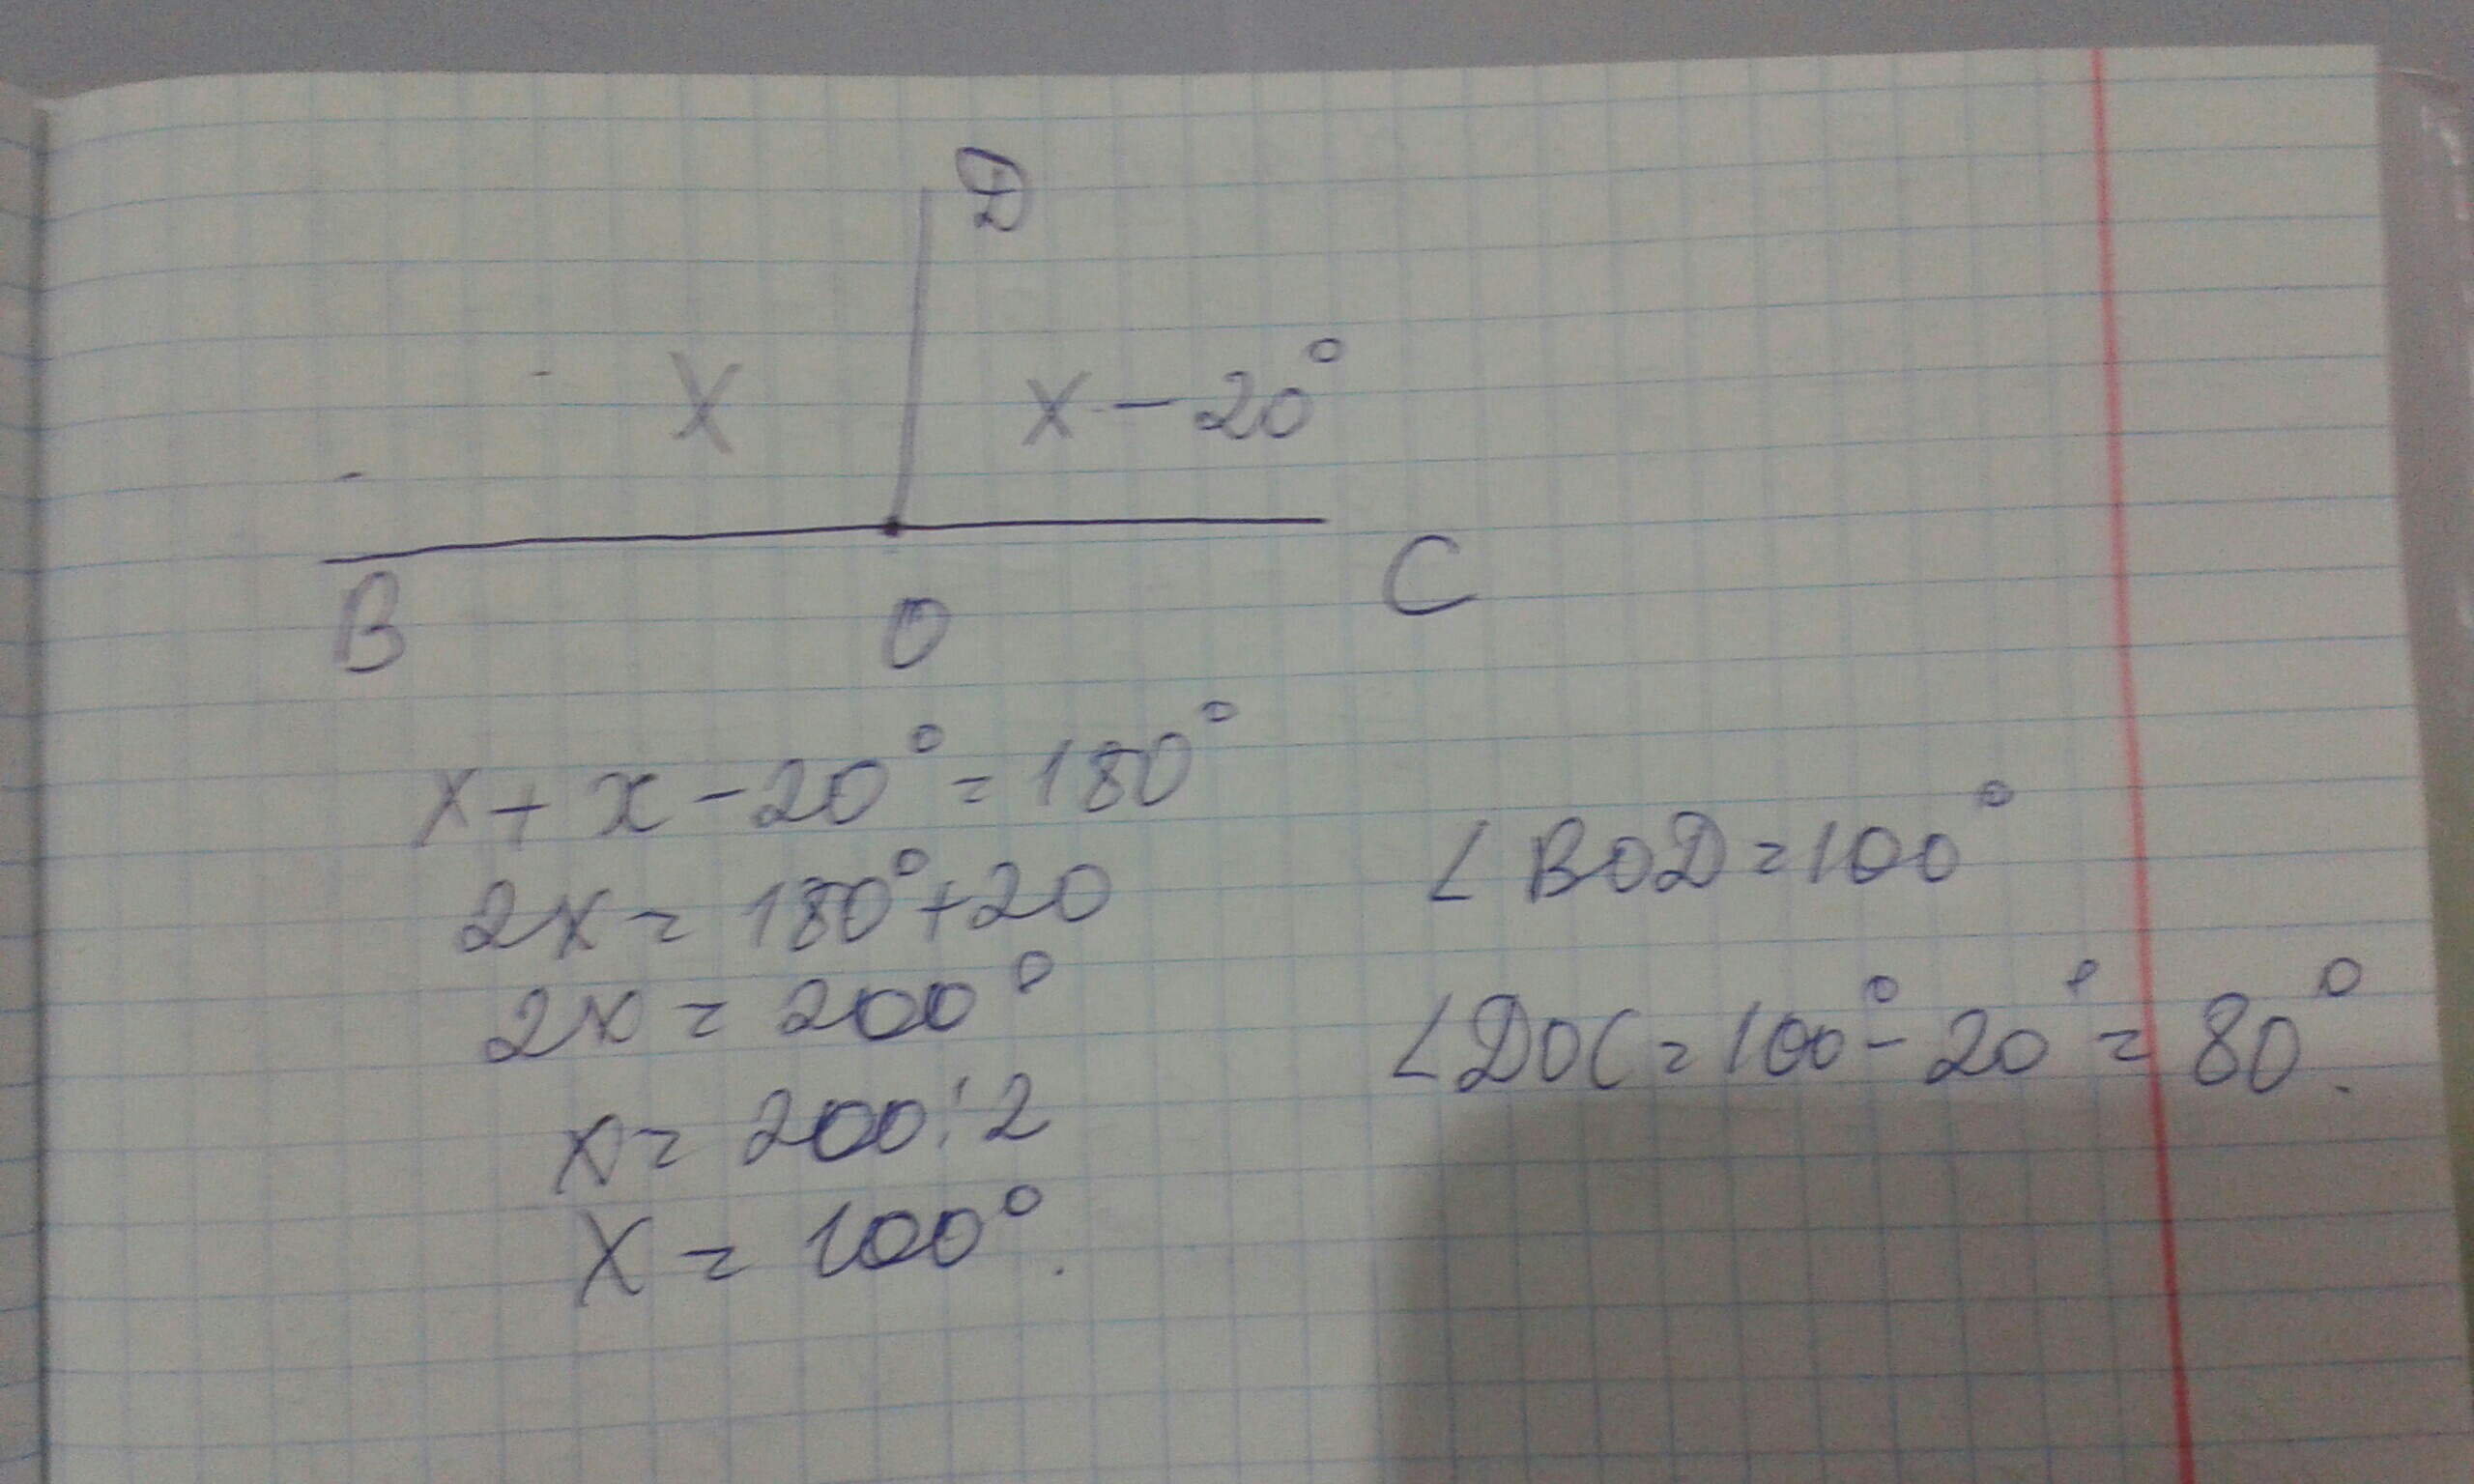 D
X
x - 20°
B
O
C
x + x - 20° = 180°
2x = 180° + 20
2x = 200°
x = 200 : 2
x = 100°.
∠BOD = 100°
∠DOC = 100° - 20° = 80°.